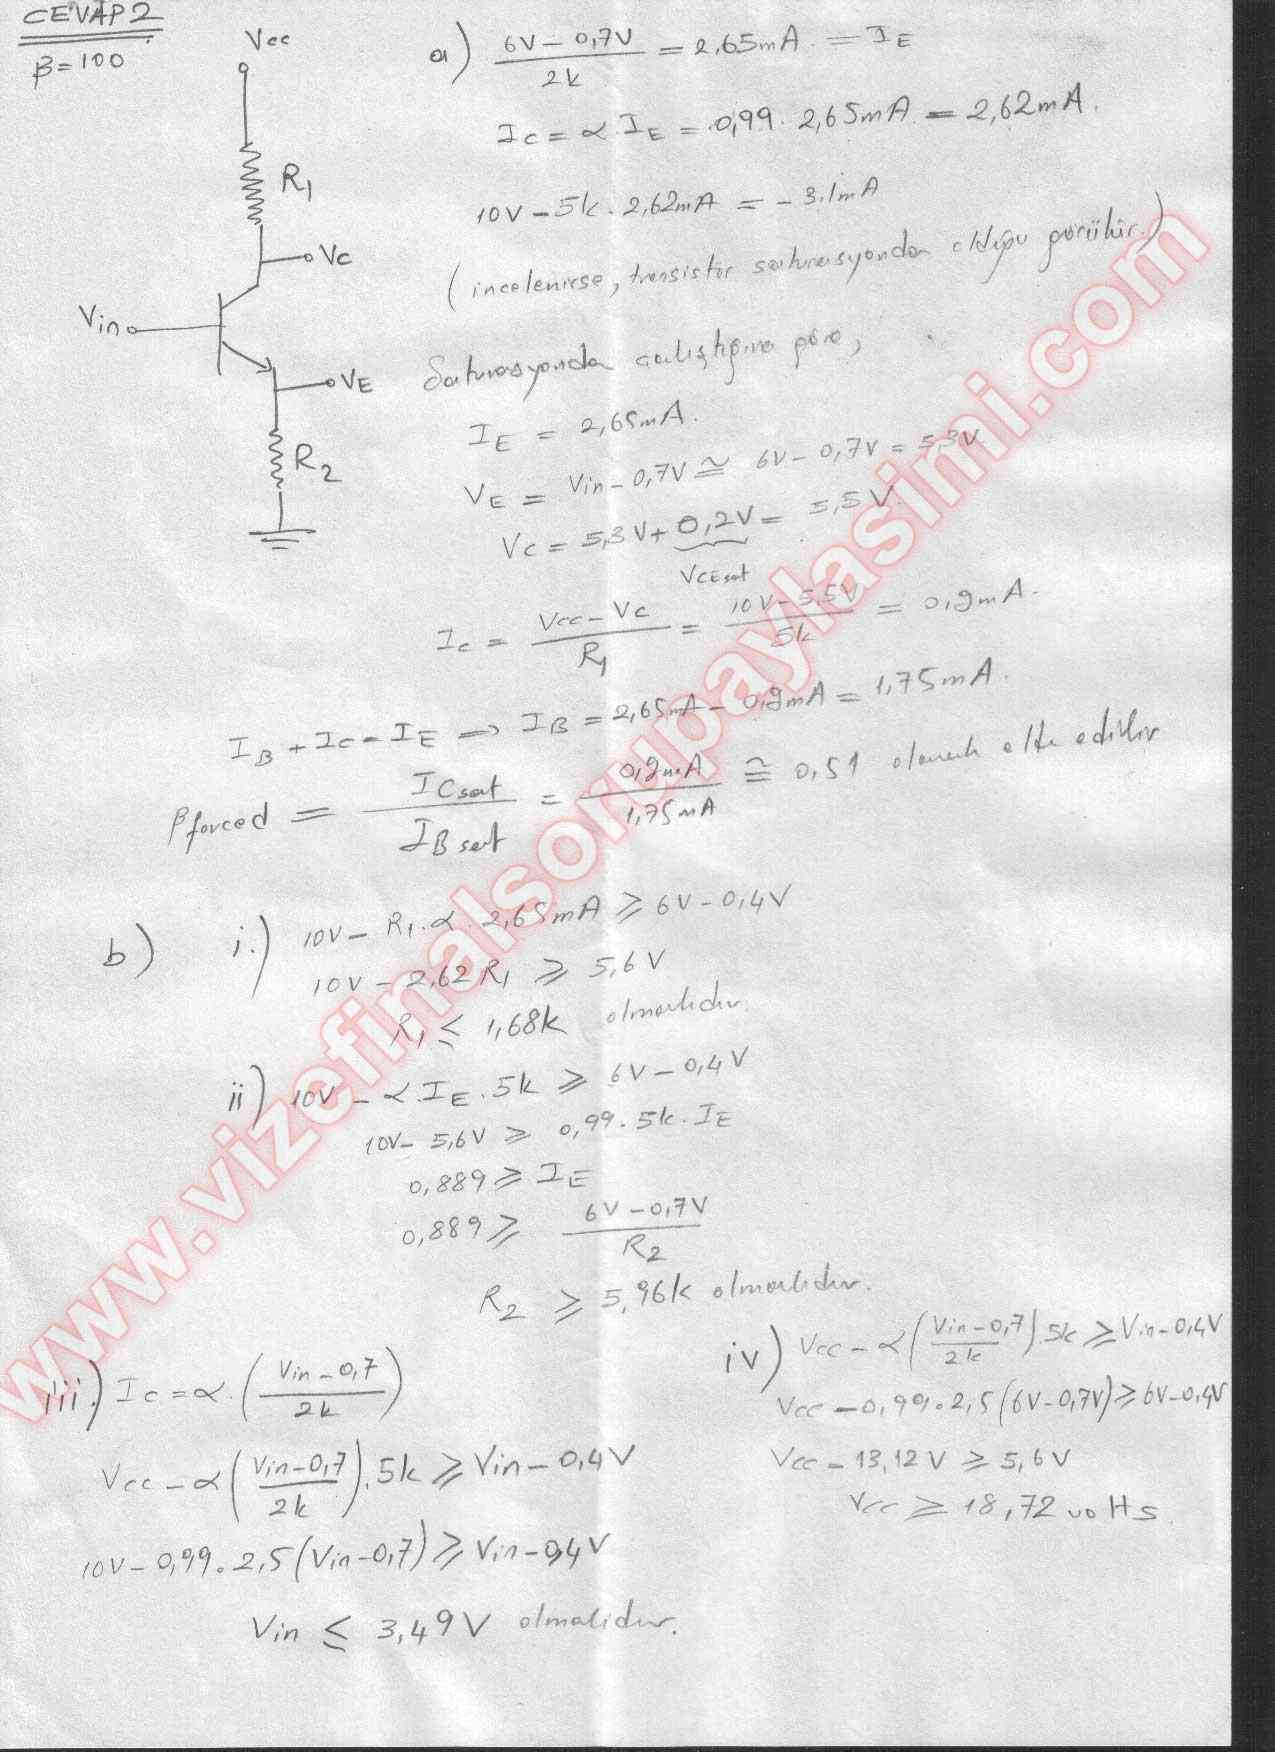 CEVAP 2
β=100
Vcc
R1
Vc
Vin
VE
R2
a) (6V - 0,7V) / 2k = 2,65mA. = IE
Ic = α.IE = 0,99. 2,65mA. = 2,62mA.
10V - 5k. 2,62mA = -3.1mA
(incelenirse, transistör saturasyonda olduğu görülür.)
Saturasyonda çalıştığına göre,
IE = 2,65mA.
VE = Vin - 0,7V ≅ 6V - 0,7V = 5,3V
Vc = 5,3V + 0,2V = 5,5V.
VCEsat
Ic = (Vcc - Vc) / R1 = (10V - 5,5V) / 5k = 0,9mA.
IB + Ic = IE ⟹ IB = 2,65mA - 0,9mA = 1,75mA.
βforced = ICsat / IBsat = 0,9mA / 1,75mA ≅ 0,51 olarak elde edilir
b) i.) 10V - R1.α. 2,65mA ≥ 6V - 0,4V
10V - 2,62R1 ≥ 5,6V
R1 ≤ 1,68k olmalıdır.
ii) 10V - α.IE.5k ≥ 6V - 0,4V
10V - 5,6V ≥ 0,99.5k.IE
0,889 ≥ IE
0,889 ≥ (6V - 0,7V) / R2
R2 ≥ 5,96k olmalıdır.
iii.) Ic = α.((Vin - 0,7) / 2k)
Vcc - α((Vin - 0,7) / 2k).5k ≥ Vin - 0,4V
10V - 0,99.2,5(Vin - 0,7) ≥ Vin - 0,4V
Vin ≤ 3,49V olmalıdır.
iv) Vcc - α((Vin - 0,7) / 2k).5k ≥ Vin - 0,4V
Vcc - 0,99.2,5(6V - 0,7V) ≥ 6V - 0,4V
Vcc - 13,12V ≥ 5,6V
Vcc ≥ 18,72 volts.
www.vizefinalsorupaylasimi.com